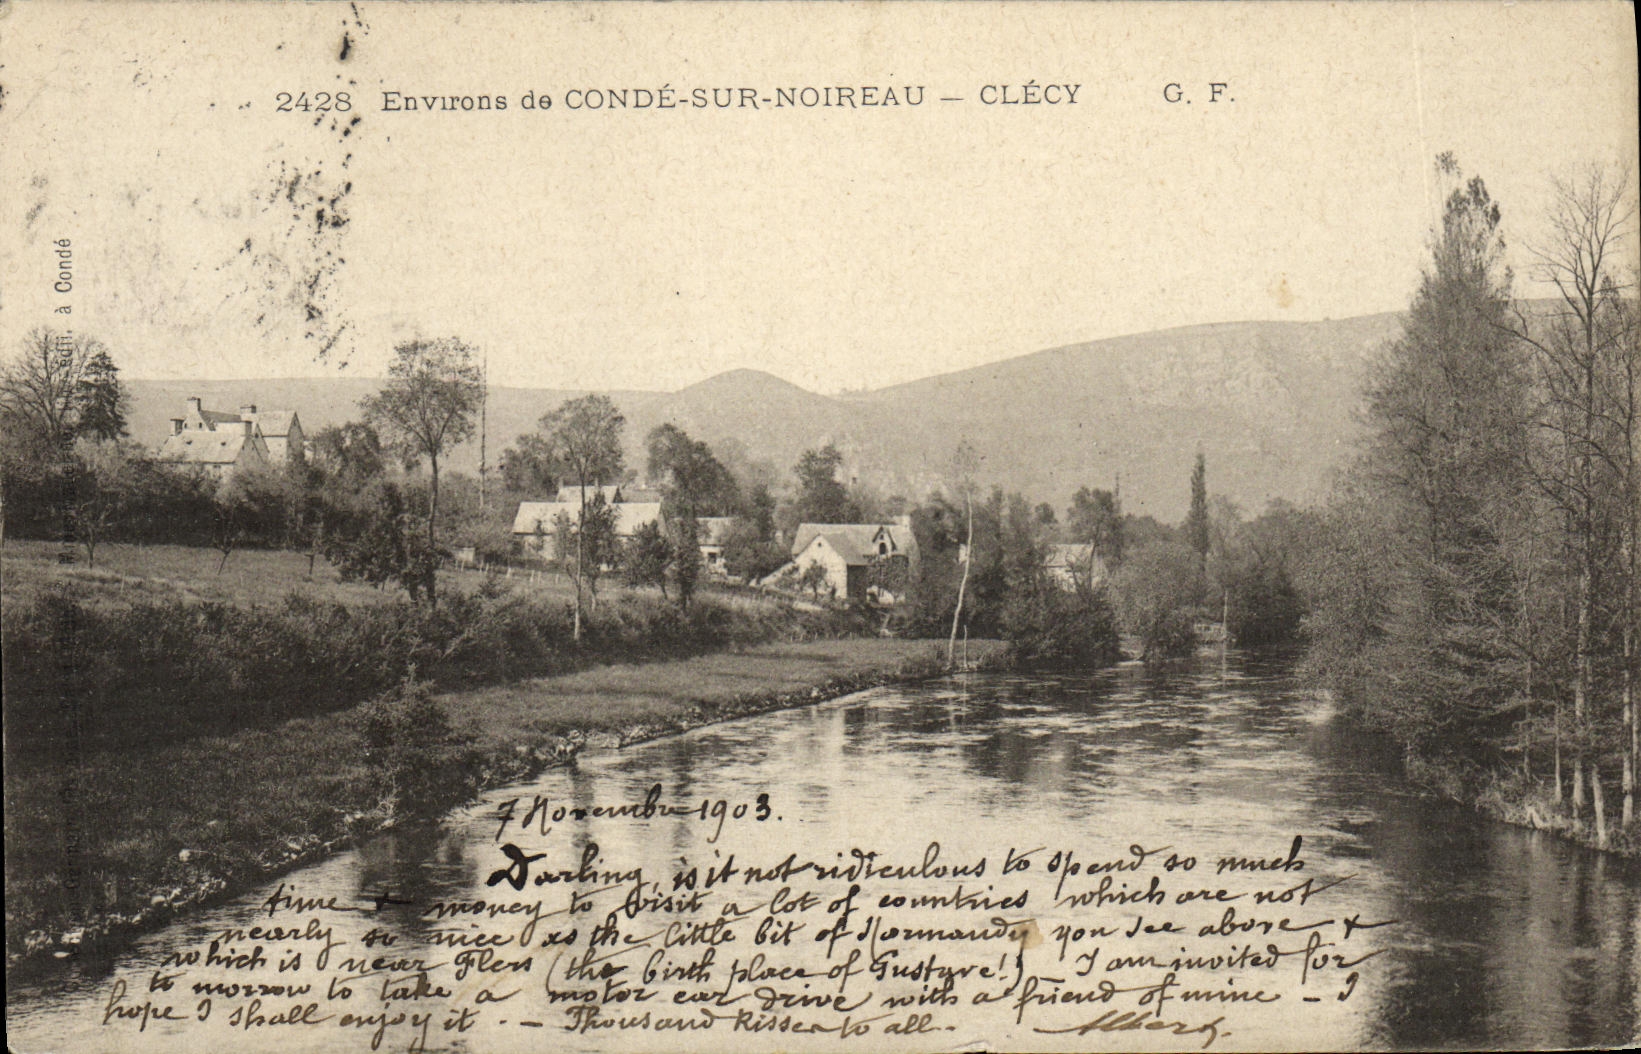 2428 Environs de CONDÉ-SUR-NOIREAU — CLÉCY G. F.
édit. à Condé
7 Novembre 1903.
Darling, is it not ridiculous to spend so much
time & money to visit a lot of countries which are not
nearly so nice as the little bit of Normandy you see above &
which is near Flers (the birth place of Gustave!) — I am invited for
to morrow to take a motor car drive with a friend of mine — I
hope I shall enjoy it. — Thousand Kisses to all.
Albert.